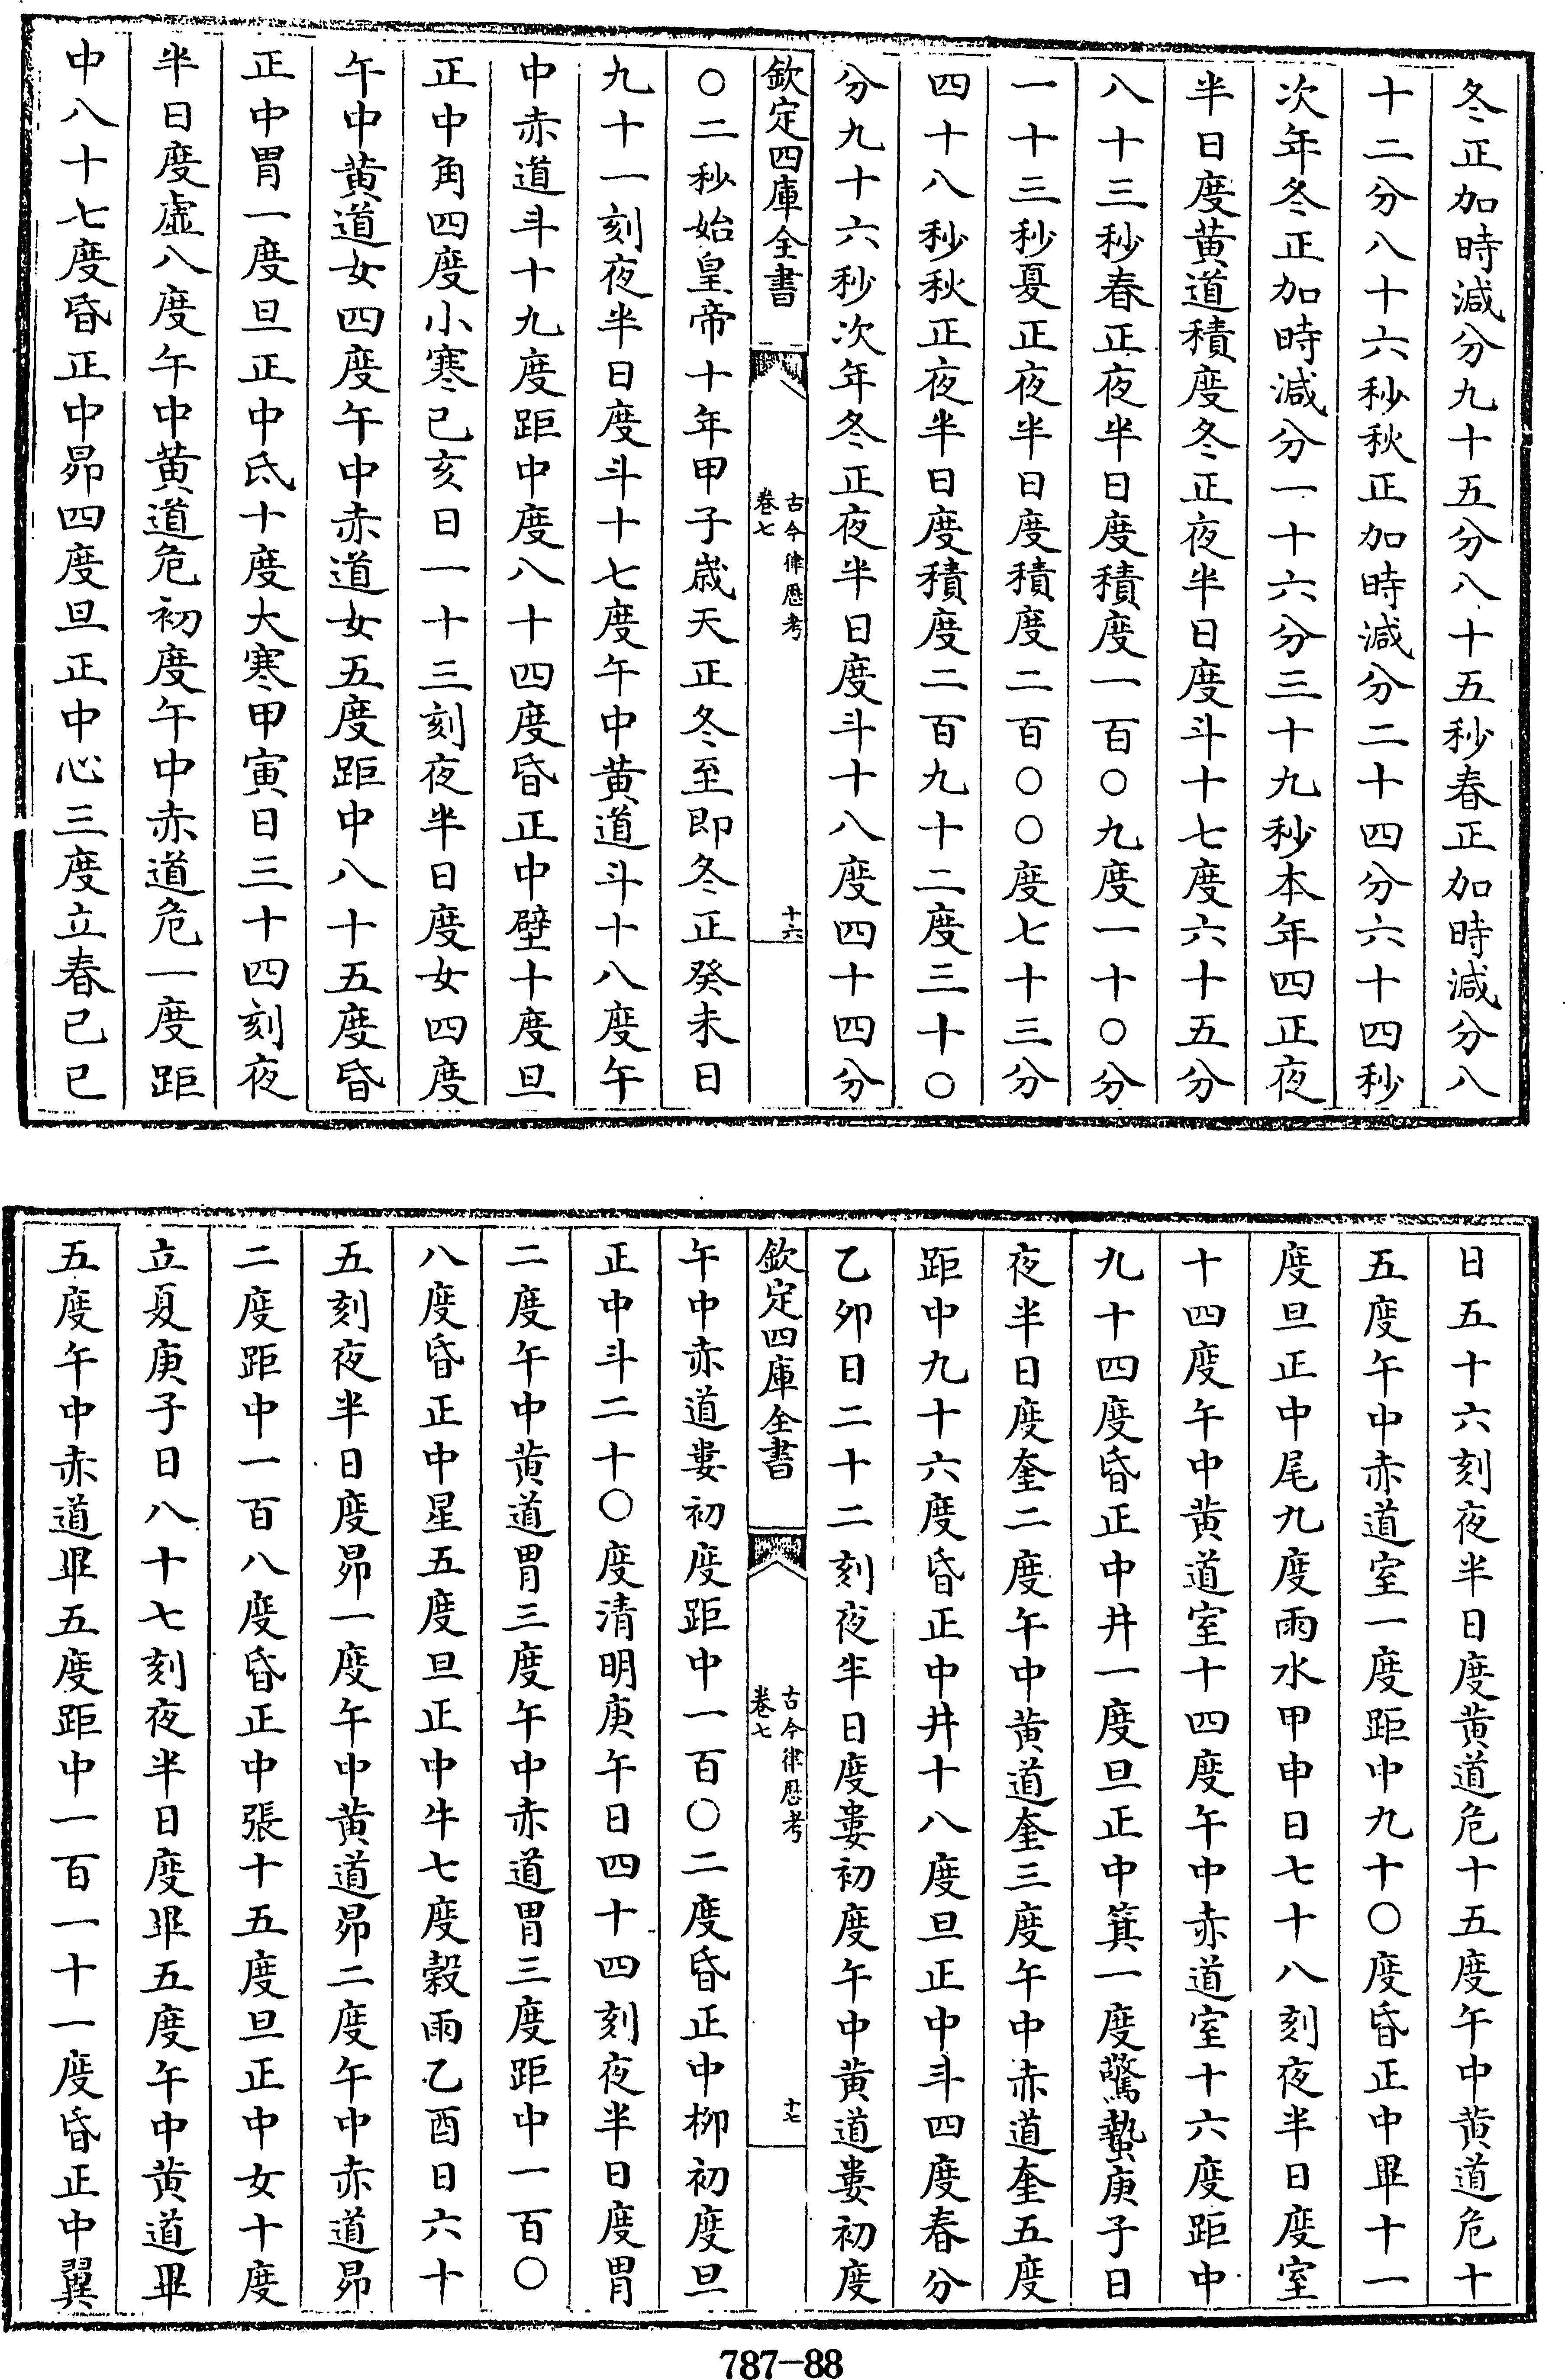 冬正加時減分九十五分八十五秒春正加時減分八
十二分八十六秒秋正加時減分二十四分六十四秒
次年冬正加時減分一十六分三十九秒本年四正夜
半日度黄道積度冬正夜半日度斗十七度六十五分
八十三秒春正夜半日度積度一百〇九度一十〇分
一十三秒夏正夜半日度積度二百〇〇度七十三分
四十八秒秋正夜半日度積度二百九十二度三十〇
分九十六秒次年冬正夜半日度斗十八度四十四分
欽定四庫全書
古今律厯考
卷七
十六
〇二秒始皇帝十年甲子嵗天正冬至即冬正癸未日
九十一刻夜半日度斗十七度午中黄道斗十八度午
中赤道斗十九度距中度八十四度昏正中壁十度旦
正中角四度小寒己亥日一十三刻夜半日度女四度
午中黄道女四度午中赤道女五度距中八十五度昏
正中胃一度旦正中氐十度大寒甲寅日三十四刻夜
半日度虚八度午中黄道危初度午中赤道危一度距
中八十七度昏正中昴四度旦正中心三度立春己巳
日五十六刻夜半日度黄道危十五度午中黄道危十
五度午中赤道室一度距中九十〇度昏正中畢十一
度旦正中尾九度雨水甲申日七十八刻夜半日度室
十四度午中黄道室十四度午中赤道室十六度距中
九十四度昏正中井一度旦正中箕一度驚蟄庚子日
夜半日度奎二度午中黄道奎三度午中赤道奎五度
距中九十六度昏正中井十八度旦正中斗四度春分
乙夘日二十二刻夜半日度婁初度午中黄道婁初度
欽定四庫全書
古今律厯考
卷七
十七
午中赤道婁初度距中一百〇二度昏正中柳初度旦
正中斗二十〇度清明庚午日四十四刻夜半日度胃
二度午中黄道胃三度午中赤道胃三度距中一百〇
八度昏正中星五度旦正中牛七度穀雨乙酉日六十
五刻夜半日度昴一度午中黄道昴二度午中赤道昴
二度距中一百八度昏正中張十五度旦正中女十度
立夏庚子日八十七刻夜半日度畢五度午中黄道畢
五度午中赤道畢五度距中一百一十一度昏正中翼
787-88